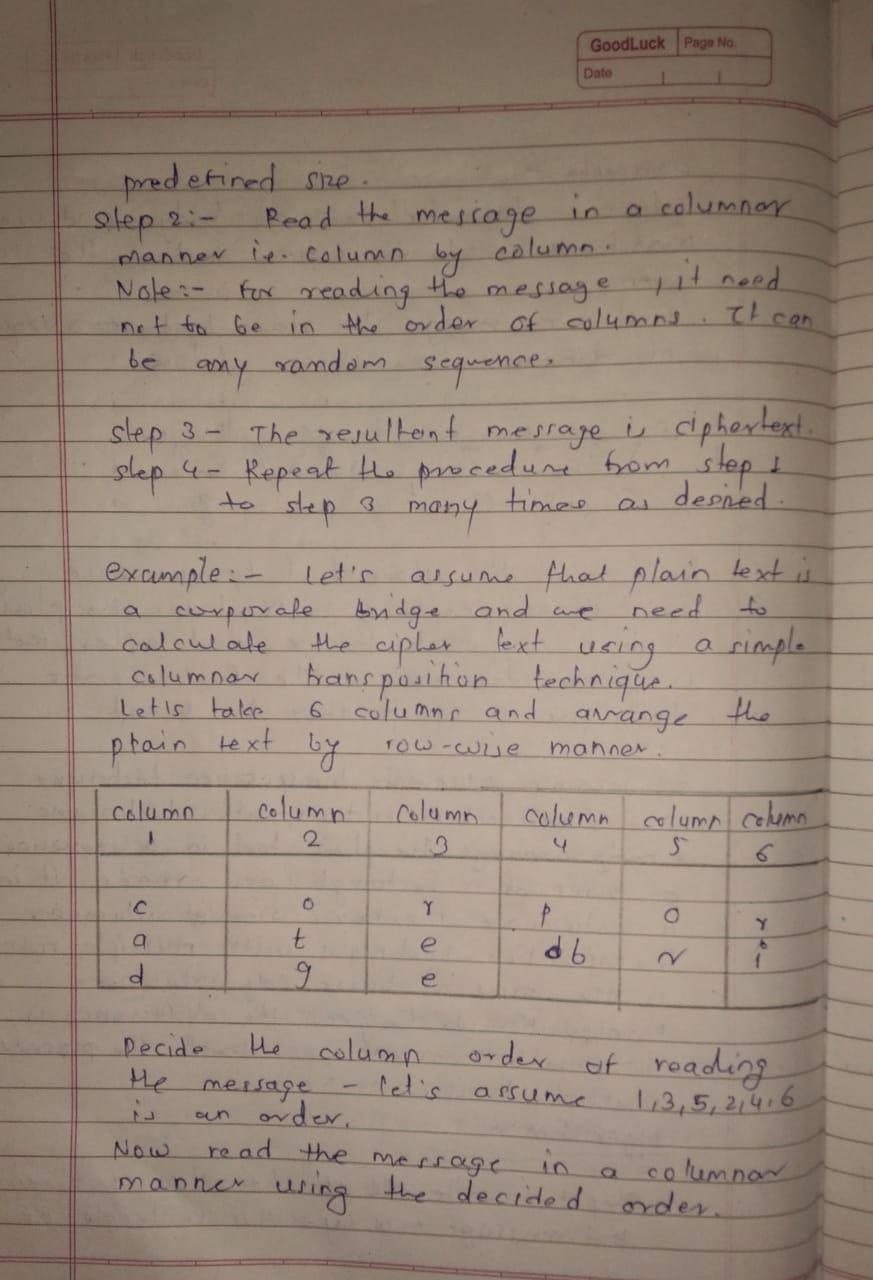 GoodLuck Page No.
Date
predefined size.
Step 2:- Read the message in a columnar
manner ie. column by column.
Note:- for reading the message, it need
not to be in the order of columns. It can
be any random sequence.
step 3 - The resultent message is ciphertext.
step 4 - Repeat the procedure from step 1
to step 3 many times as desired.
example:- let's assume that plain text is
a corporate bridge and we need to
calculate the cipher text using a simple
columnar transposition technique.
Let's take 6 columns and arrange the
plain text by row-wise manner.
column column column column column column
1 2 3 4 5 6
c o r p o r
a t e db r i
d g e
Decide the column order of reading
the message - let's assume 1,3,5,2,4,6
is an order.
Now read the message in a columnar
manner using the decided order.